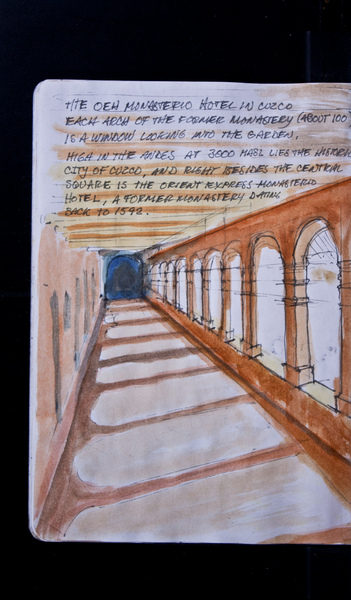 THE OEH MONASTERIO HOTEL IN CUZCO
EACH ARCH OF THE FORMER MONASTERY (ABOUT 100
IS A WINDOW LOOKING INTO THE GARDEN.
HIGH IN THE ANDES AT 3600 MASL LIES THE HISTORIC
CITY OF CUZCO, AND RIGHT BESIDES THE CENTRAL
SQUARE IS THE ORIENT EXPRESS MONASTERIO
HOTEL, A FORMER MONASTERY DATING
BACK TO 1592.